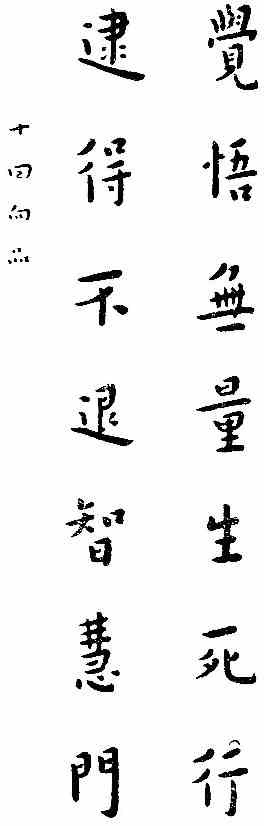 覺悟無量生死行
逮得不退智慧門
十回向品